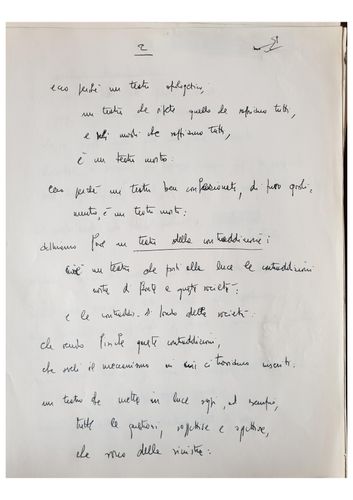 2
ecco perché un teatro apologetico,
un teatro che ripete quello che sappiamo tutti,
e nei modi che sappiamo tutti,
è un teatro morto.
Ecco perché un teatro ben confezionato, di puro
è un teatro morto.
dobbiamo fare un teatro delle contraddizioni:
cioè un teatro che porti alla luce le contraddizioni
di fronte a questa società
e le contraddiz. di fondo della società.
che renda visibile queste contraddizioni,
che sveli il meccanismo in cui ci troviamo inseriti.
un teatro che metta in luce oggi, ad esempio,
tutte le questioni, soggettive e oggettive,
che sono della sinistra.